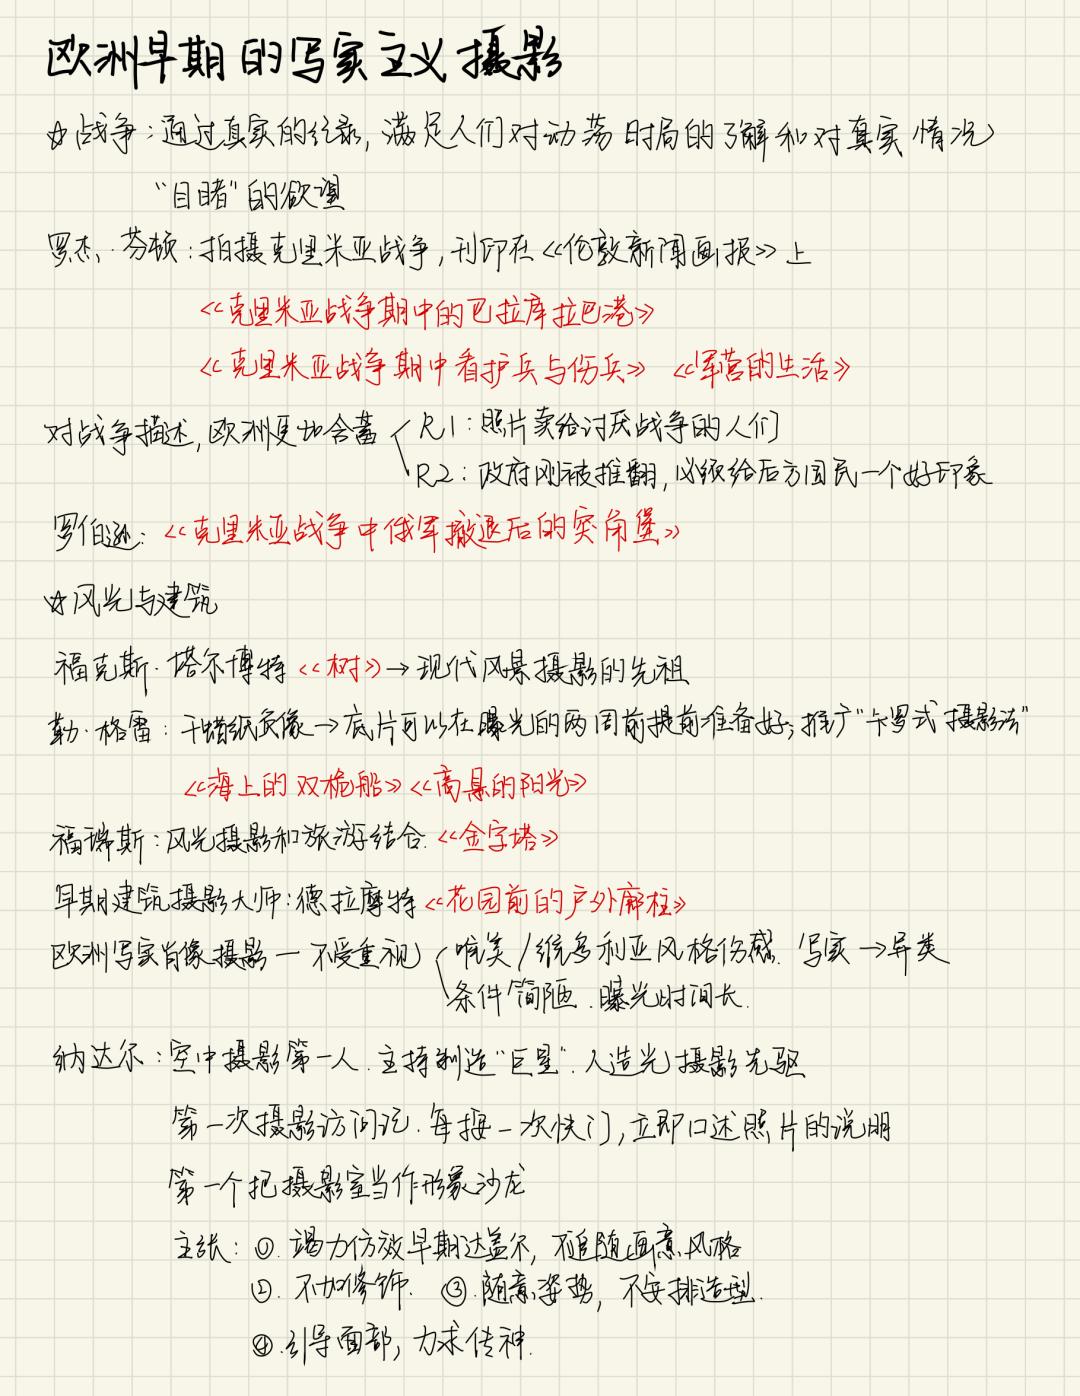 欧洲早期的写实主义摄影
☆战争：通过真实的纪录，满足人们对动荡时局的了解和对真实情况
“目睹”的欲望
罗杰·芬顿：拍摄克里米亚战争，刊印在《伦敦新闻画报》上
《克里米亚战争期中的巴拉库拉巴港》
《克里米亚战争期中看护兵与伤兵》《军营的生活》
对战争描述，欧洲更加含蓄
R1：照片卖给讨厌战争的人们
R2：政府刚被推翻，必须给后方国民一个好印象
罗伯逊：《克里米亚战争中俄军撤退后的突角堡》
☆风光与建筑
福克斯·塔尔博特《树》→现代风景摄影的先祖
勒·格雷：干蜡纸负像→底片可以在曝光的两周前提前准备好；推广“卡罗式摄影法”
《海上的双桅船》《高悬的阳光》
福瑞斯：风光摄影和旅游结合.《金字塔》
早期建筑摄影大师：德拉摩特《花园前的户外廊柱》
欧洲写实肖像摄影一不受重视
唯美/维多利亚风格伤感. 写实→异类
条件简陋.曝光时间长.
纳达尔：空中摄影第一人.主持制造“巨星”.人造光摄影先驱
第一次摄影访问记.每按一次快门，立即口述照片的说明
第一个把摄影室当作形象沙龙
主张：①.竭力仿效早期达盖尔，不追随画意风格
②.不加修饰. ③.随意姿势，不安排造型.
④.引导面部，力求传神.